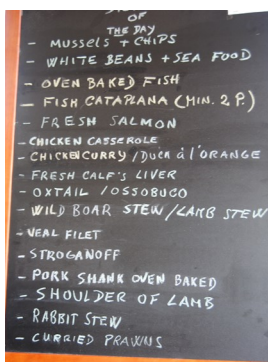 OF
THE DAY
- MUSSELS + CHIPS
- WHITE BEANS + SEA FOOD
- OVEN BAKED FISH
- FISH CATAPLANA (MIN. 2 P.)
- FRESH SALMON
- CHICKEN CASSEROLE
- CHICKENCURRY / DUCK à l'ORANGE
- FRESH CALF'S LIVER
- OXTAIL / OSSOBUCO
- WILD BOAR STEW / LAMB STEW
- VEAL FILET
- STROGANOFF
- PORK SHANK OVEN BAKED
- SHOULDER OF LAMB
- RABBIT STEW
- CURRIED PRAWNS